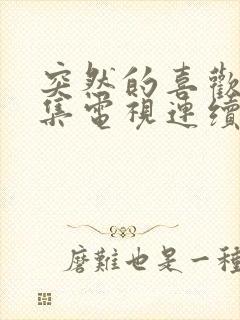 突然的喜歡
集電視連續
磨難也是一種